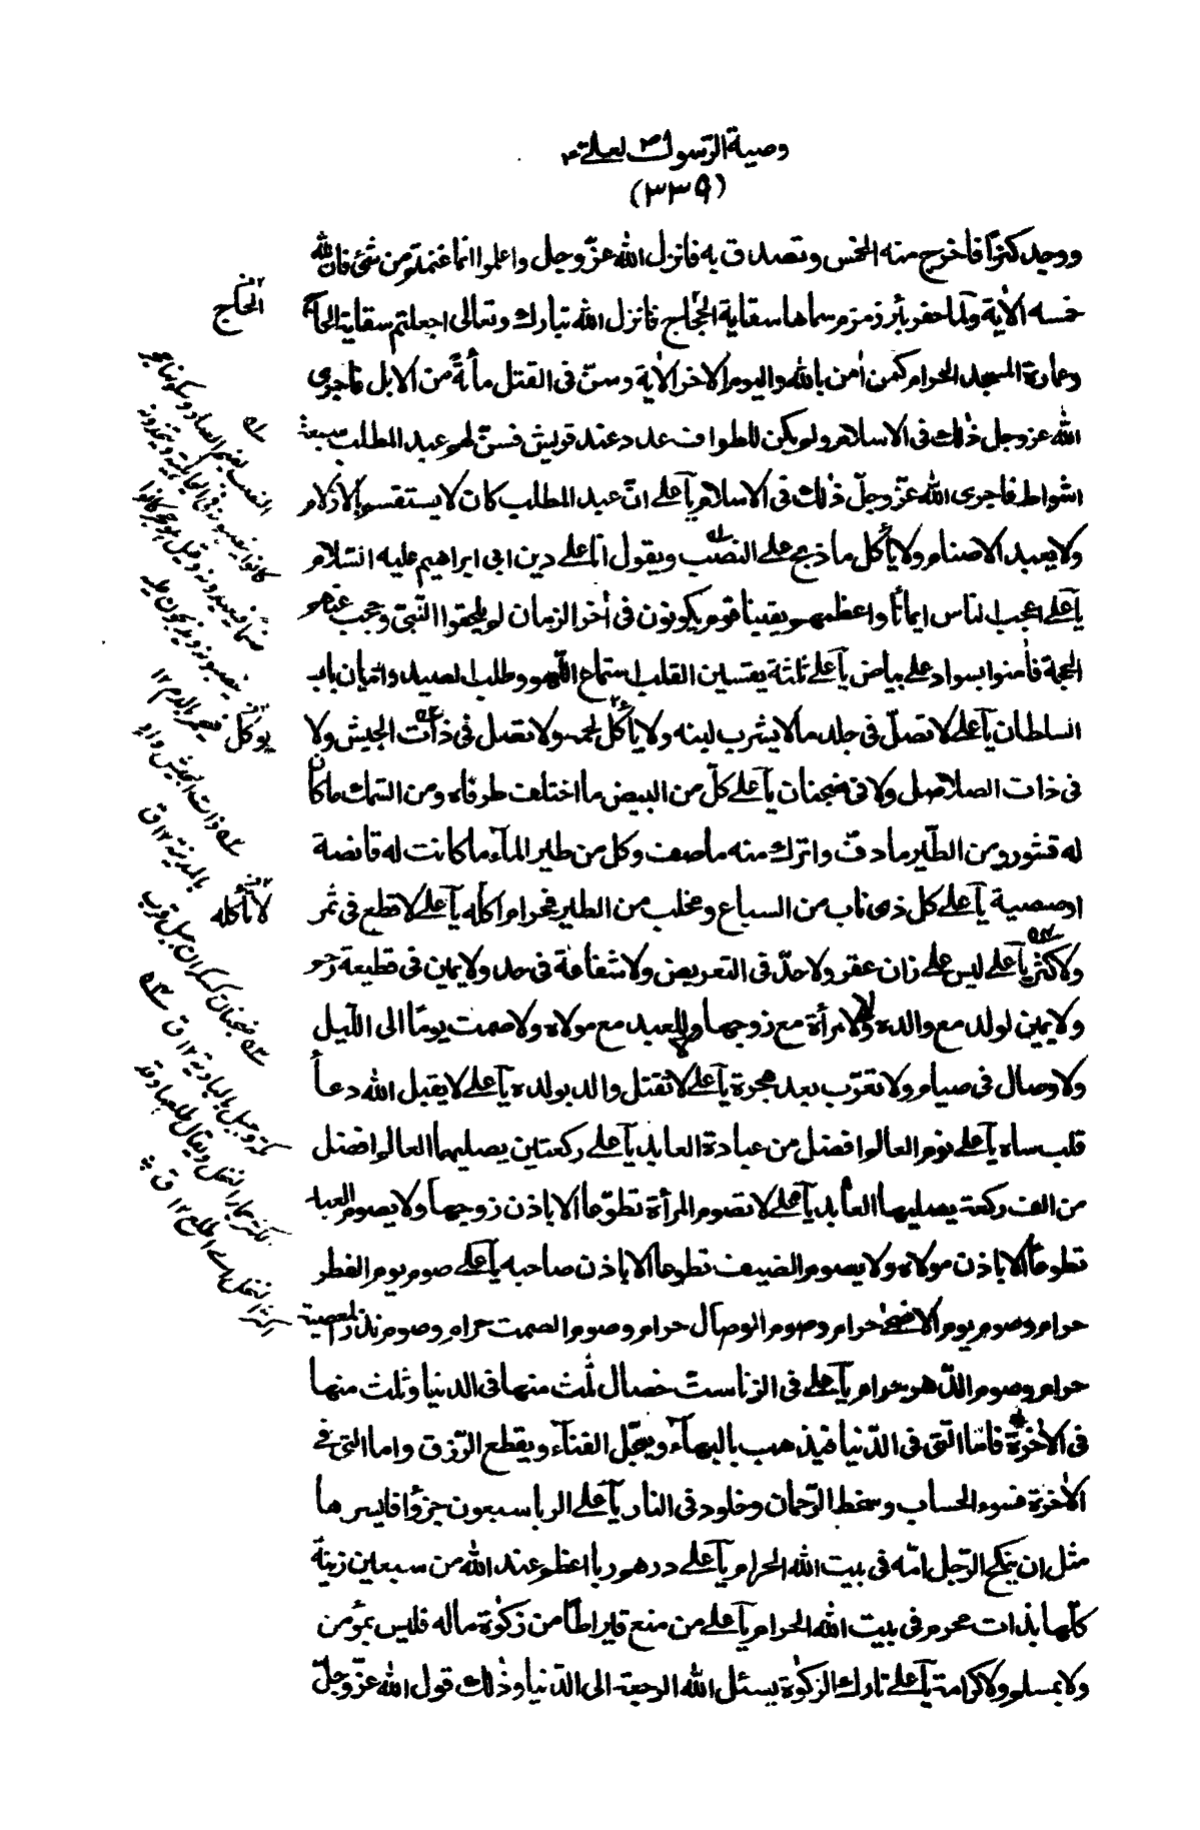 وصية الرسول ص لعلي ع
(٣٣٩)
ووجد كنزًا فاخرج منه الخمس وتصدق به فانزل الله عزّ وجل واعلموا انما غنمتم من شئ فان لله
خمسه الاٰية ولمّا حفر بئر زمزم سماها سقاية الحاج فانزل الله تبارك وتعالى اجعلتم سقاية الحاج
وعمارة المسجد الحرام كمن اٰمن بالله واليوم الاخر الاٰية وسنّ في القتل مأةً من الابل فاجرى
الله عز وجل ذٰلك في الاسلام ولم يكن للطواف عدد عند قريش فسنّ لهم عبد المطلب سبعة
اشواط فاجرى الله عزّ وجلّ ذٰلك في الاسلام يٓا علي انّ عبد المطلب كان لا يستقسم بالازلام
ولا يعبد الاصنام ولا يأكل ما ذبح على النصب ويقول انا على دين ابي ابراهيم عليه السّلام
يٓا علي اعجب الناس ايمانًا واعظمهم يقينا قوم يكونون في اٰخر الزمان لم يلحقوا النّبيّ وحجب عنهم
الحجة فاٰمنوا بسواد على بياض يٓا علي ثلثة يقسين القلب استماع اللّهو وطلب الصيد واتيان باب
السلطان يٓا علي لا تصلّ في جلد ما لا يشرب لبنه ولا يأكل لحمه ولا تصل في ذات الجيش ولا
في ذات الصلاصل ولا في ضجنان يٓا علي كلّ من البيض ما اختلف طرفاه ومن السّمك ما كان
له قشور ومن الطّير ما دفّ واترك منه ما صف وكل من طير المآء ما كانت له قانصة
او صيصية يٓا علي كل ذي ناب من السباع ومخلب من الطير فحرام اكله يٓا علي لا قطع في ثمر
ولا كثر يٓا علي ليس على زان عقر ولا حدّ في التعريض ولا شفاعة في حد ولا يمين في قطيعة رحم
ولا يمين لولد مع والده ولا لامرأة مع زوجها ولا للعبد مع مولاه ولا صمت يومًا الى اللّيل
ولا وصال في صيام ولا تعرّب بعد هجرة يٓا علي لا يقتل والد بولده يٓا علي لا يقبل الله دعاءً
قلب ساه يٓا علي نوم العالم افضل من عبادة العابد يٓا علي ركعتين يصليهما العالم افضل
من الف ركعة يصليها العابد يٓا علي لا تصوم المرأة تطوّعا الا باذن زوجها ولا يصوم العبد
تطوعًا الا باذن مولاه ولا يصوم الضيف تطوعا الا باذن صاحبه يٓا علي صوم يوم الفطر
حرام وصوم يوم الاضحى حرام وصوم الوصال حرام وصوم الصمت حرام وصوم نذر المعصية
حرام وصوم الدّهر حرام يٓا علي في الزنا ستّ خصال ثلٰث منها في الدنيا وثلث منها
في الاٰخرة فامّا الّتي في الدّنيا فيذهب بالبهآء ويعجّل الفنآء ويقطع الرّزق واما التي في
الاٰخرة فسوء الحساب وسخط الرّحمان وخلود في النار يٓا علي الربا سبعون جزؤًا فايسرها
مثل ان ينكح الرّجل امّه في بيت الله الحرام يٓا علي درهم ربا اعظم عند الله من سبعين زنية
كلّها بذات محرم في بيت الله الحرام يٓا علي من منع قيراطًا من زكٰوة ماله فليس بمؤمن
ولا بمسلم ولا كرامة يٓا علي تارك الزكٰوة يسئل الله الرجعة الى الدّنيا وذٰلك قول الله عزّ وجلّ
الحاج
يوكل
لا تأكله